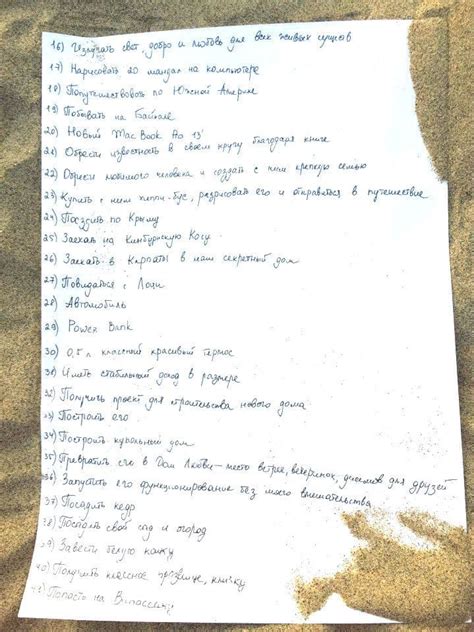 16) Излучать свет, добро и любовь для всех живых существ
17) Нарисовать 20 мандал на компьютере
18) Попутешествовать по Южной Америке
19) Побывать на Байкале
20) Новый MacBook Pro 13'
21) Обрести известность в своем кругу благодаря книге
22) Обрести любимого человека и создать с ним крепкую семью
23) Купить с ним хиппи-бус, разрисовать его и отправиться в путешествие
24) Поездить по Крыму
25) Заехать на Кинбурнскую Косу
26) Заехать в Карпаты в наш секретный дом
27) Повидаться с
28) Автомобиль
29) Power Bank
30) 0,5 л классный красивый термос
31) Иметь стабильный доход в размере
32) Получить проект для строительства нового дома
33) Построить его
34) Построить купольный дом
35) Превратить его в Дом Любви - место встреч, вечеринок, для друзей
36) Запустить его функционирование без моего вмешательства
37) Посадить кедр
38) свой сад и огород
39) Завести белую
40) Получить классное прозвище, кличку
41) Попасть на